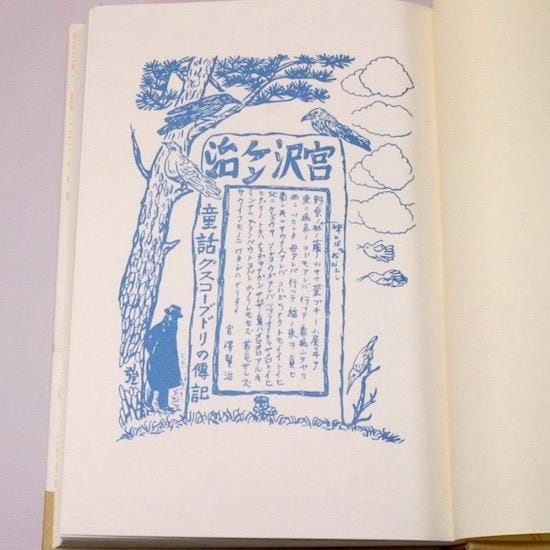 宮沢ケン治
野原ノ松ノ林ノ蔭ノ小サナ萱ブキノ小屋ニヰテ
東ニ病気ノコドモアレバ行ッテ看病シテヤリ
西ニツカレタ母アレバ行ッテ稲ノ束ヲ負ヒ
南ニ死ニサウナ人アレバコハガラナクテモイイトイヒ
北ニケンクヮヤソショウガアレバツマラナイカラヤメロトイヒ
ヒデリノトキハナミダヲナガシサムサノ夏ハオロオロアルキ
ミンナニデクノバウトヨバレホメラレモセズ苦ニモサレズ
サウイフモノニワタシハナリタイ
宮澤賢治
童話グスコーブドリの傳記